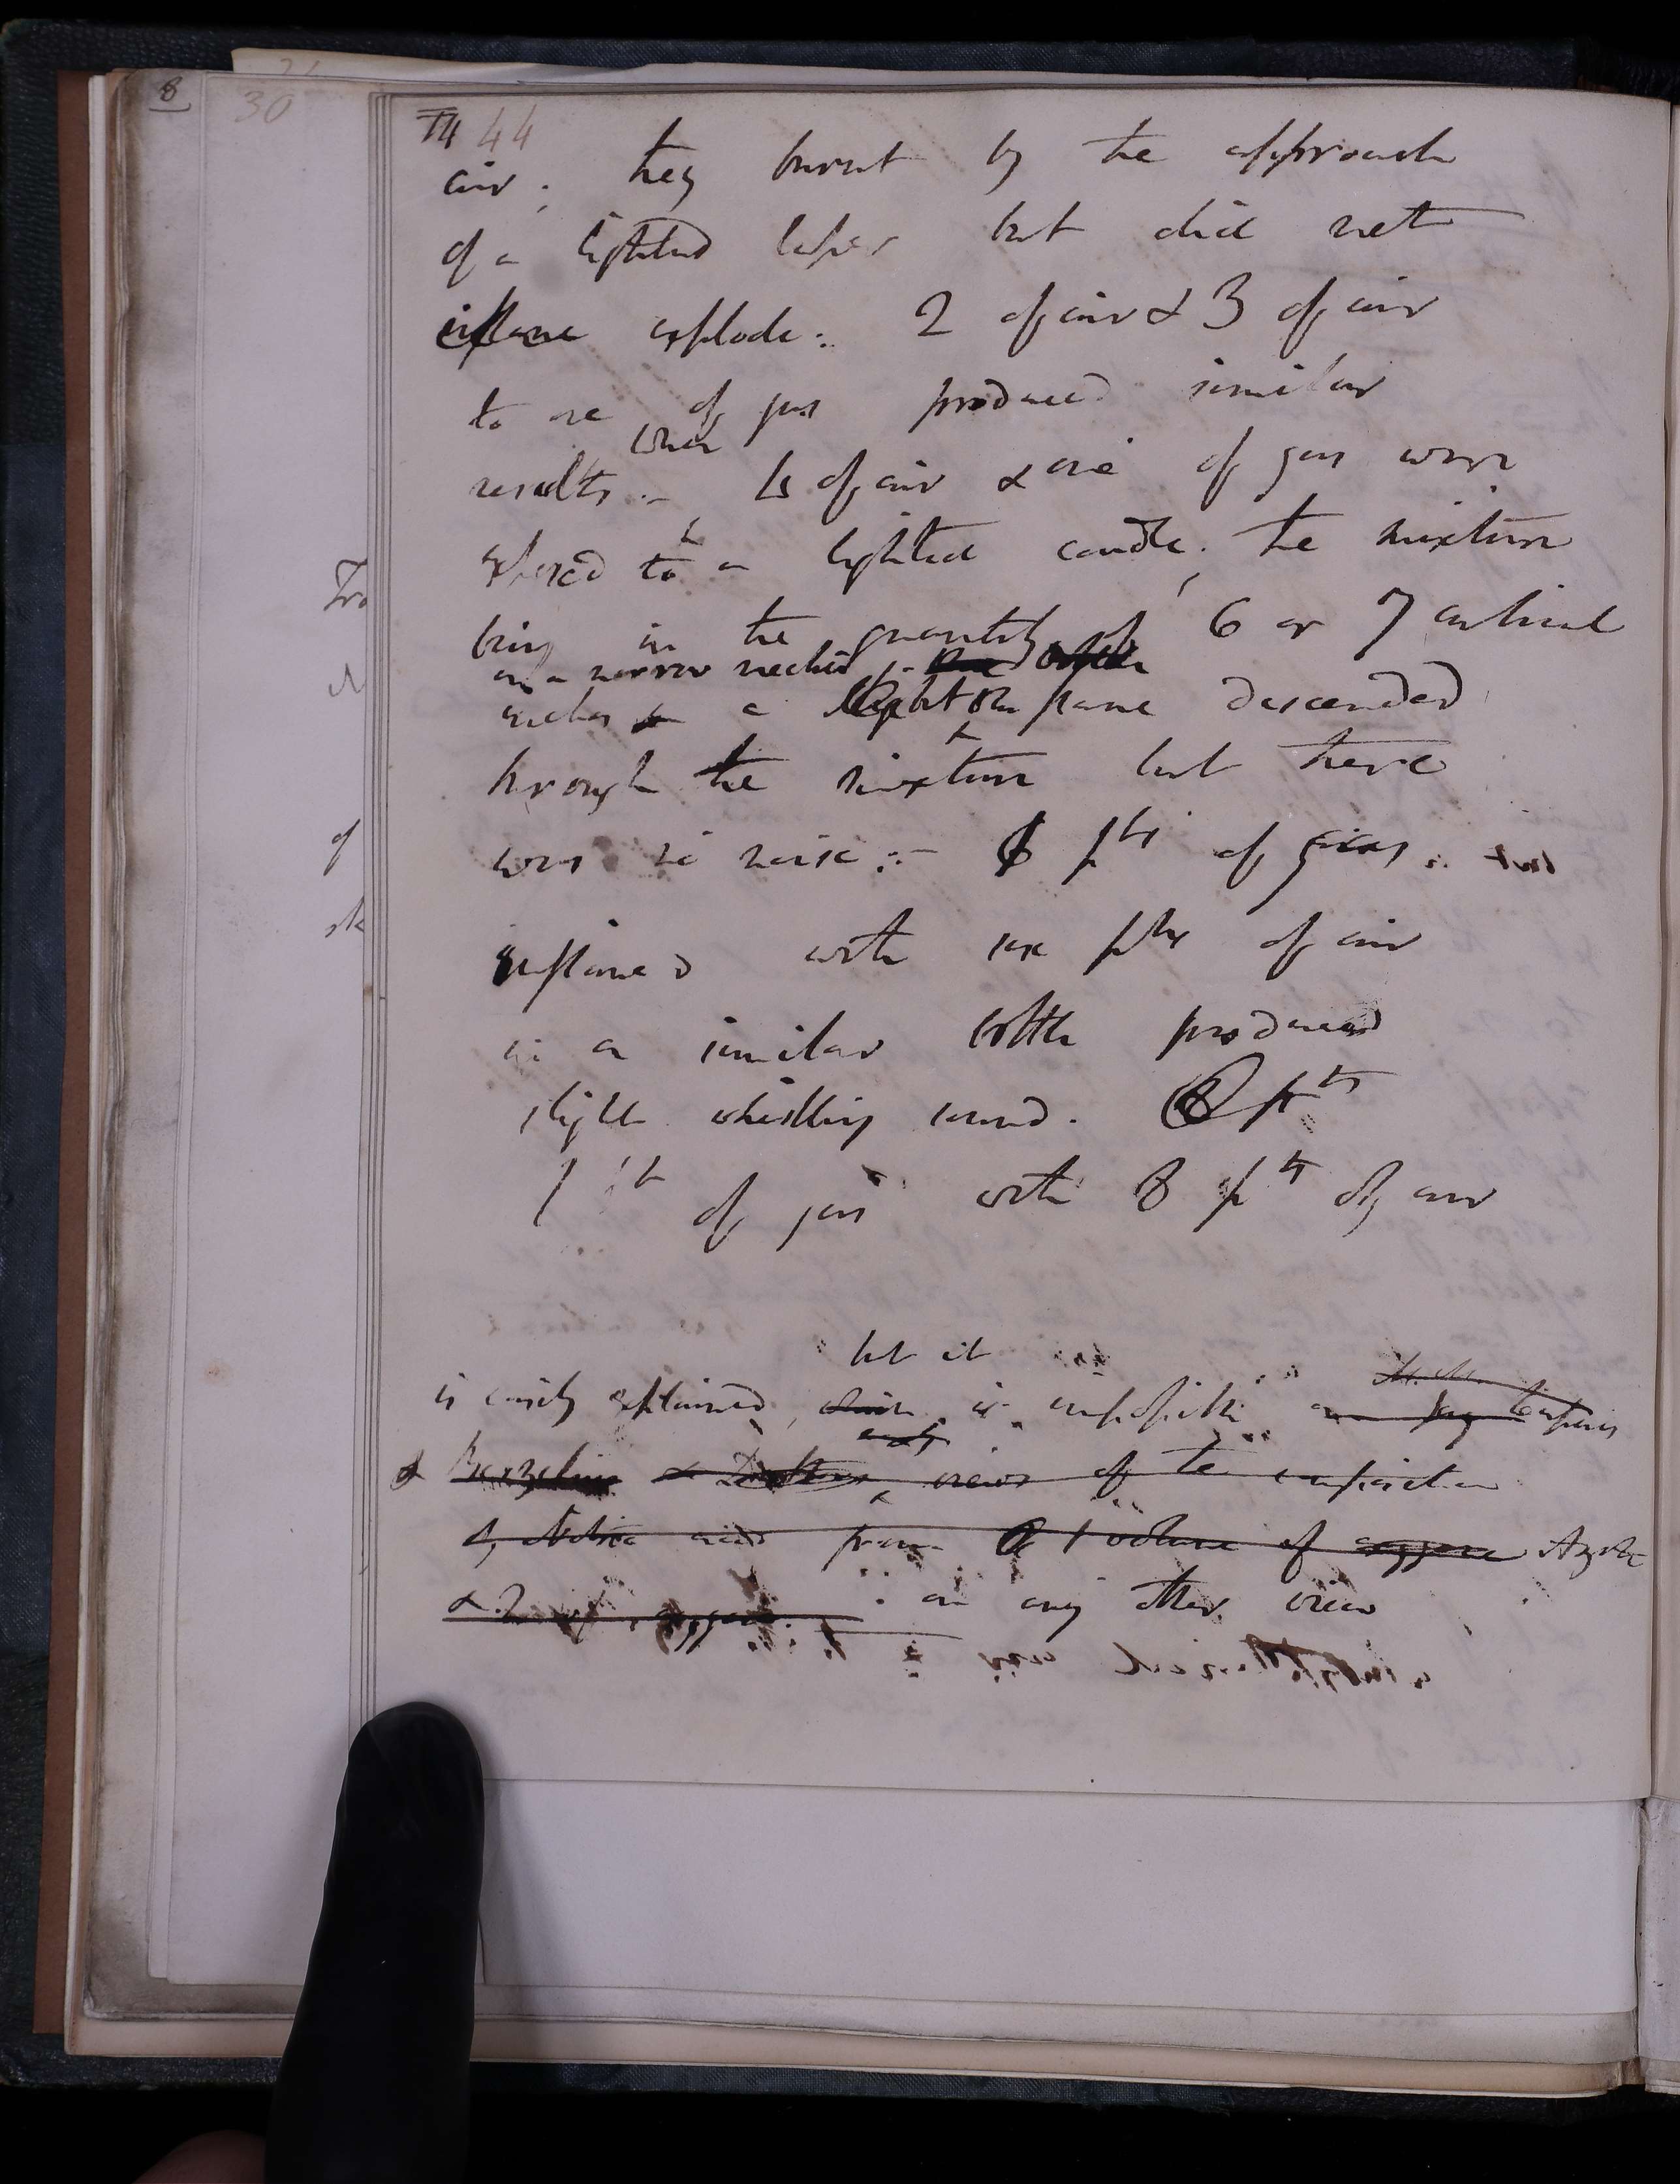 8
30
14 44
air; they burnt by the approach
of a lighted taper but did not
inflame explode:. 2 of air & 3 of air
to one of gas produced similar
when
results.- 4 of air & one of gas were
exposed to a lighted candle. the mixture
being in the quantity of 6 or 7 cubical
in a narrow necked bottle
inches a light blue flame descended
through the mixture but there
was no noise:- 6 pts of gas
inflamed with six pts of air
in a similar bottle produced
slight whistling sound. pts
1 pt of gas with 8 pts of air
but it
is easily explained, is impossible on Gay
& Berzelius & Daltons views of the composition
of Nitric acid from 1 volume of oxygene Azote
& 2 of oxygene. on any other view